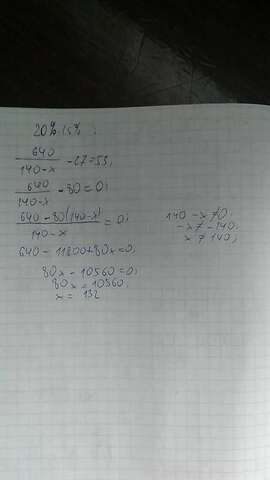 20% 15%
640/(140-x) - 27=53;
640/(140-x) - 80=0;
(640-80(140-x))/(140-x) = 0;
640-11200+80x=0;
80x-10560=0;
80x=10560;
x= 132
140-x≠0;
-x≠-140;
x≠140;